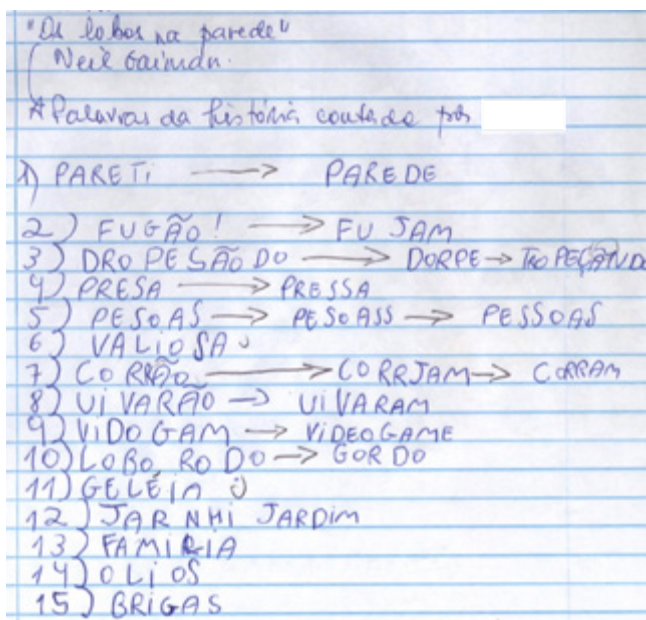 "Os lobos na parede"
Neil Gaiman.
* Palavras da história contada por
1) PARETI → PAREDE
2) FUGÃO! → FUJAM
3) DROPESÃODO → DORPE → TROPEÇANDO
4) PRESA → PRESSA
5) PESOAS → PESOASS → PESSOAS
6) VALIOSA
7) CORRÃO → CORRJAM → CORRAM
8) UIVARÃO → UIVARAM
9) VIDOGAM → VIDEOGAME
10) LOBO RODO → GORDO
11) GELÉIA
12) JARNHI JARDIM
13) FAMIRIA
14) OLIOS
15) BRIGAS